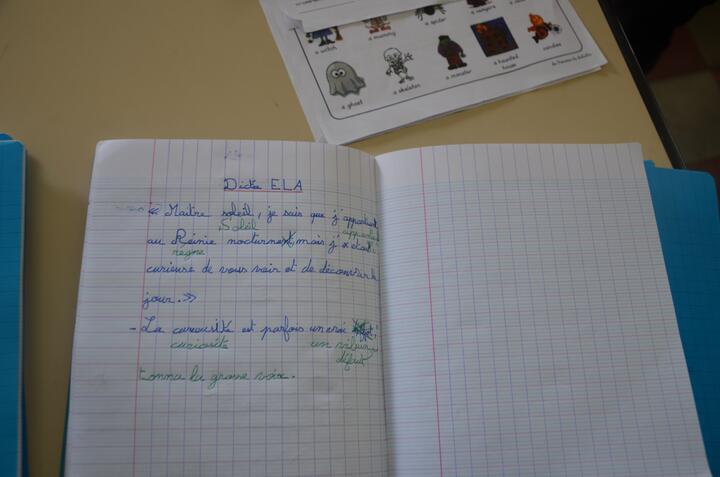 a witch
a mummy
a spider
a vampire
a ghost
a skeleton
a monster
a haunted house
zombie
Dictée ELA
« Maitre soleil, je sais que j'appartient
Soleil appartiens
au Réinie nocturne, mais j'
regne
curieuse de vous voir et de découvrir le
jour. »
- La curausité est parfois un croi
curiosite un vilain
défaut
tonna la grosse voix.